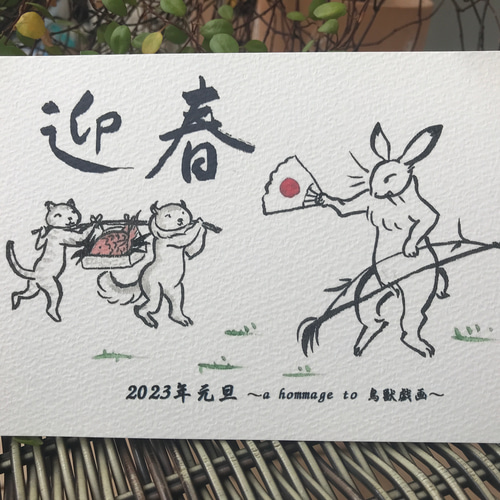 迎春
2023年元旦 〜a hommage to 鳥獣戯画〜